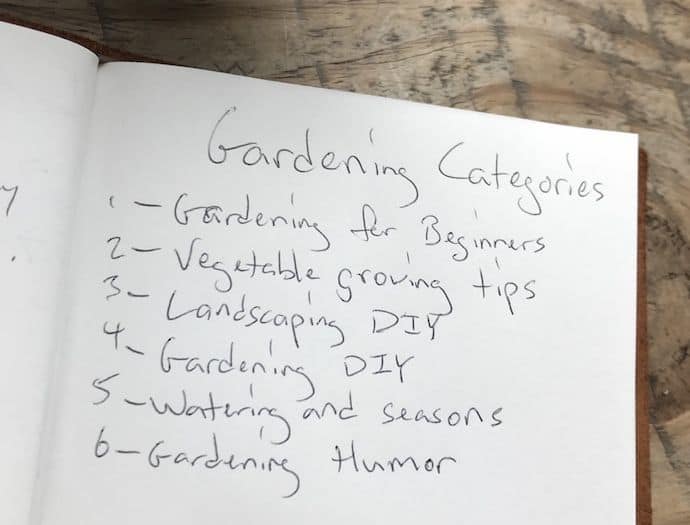 Gardening Categories
1 - Gardening for Beginners
2 - Vegetable growing tips
3 - Landscaping DIY
4 - Gardening DIY
5 - Watering and seasons
6 - Gardening Humor